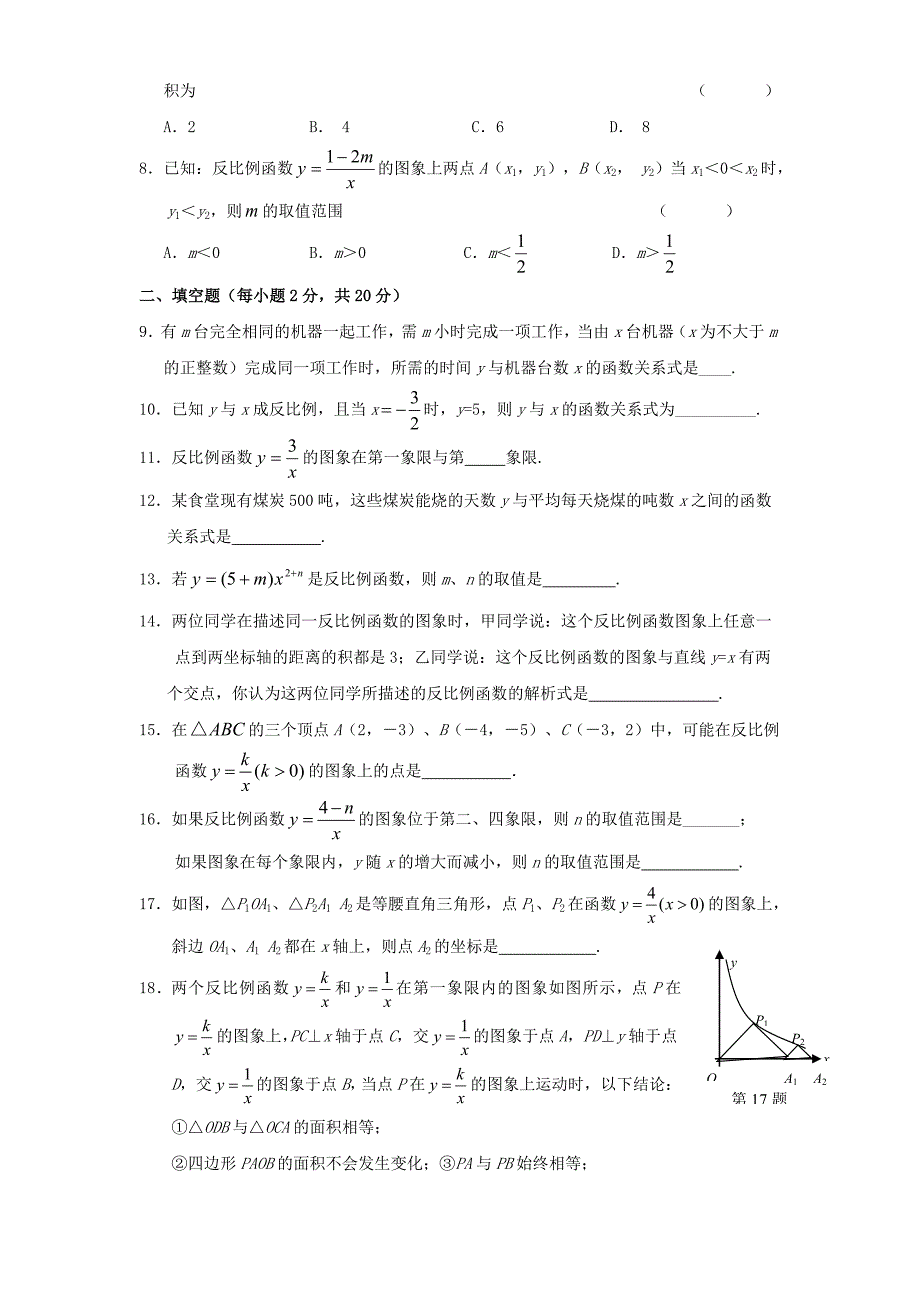 积为 （ ）
A．2 B． 4 C．6 D． 8
8．已知：反比例函数 y=\frac{1-2m}{x} 的图象上两点 A（x₁，y₁），B（x₂， y₂）当 x₁＜0＜x₂时，
y₁＜y₂，则 m 的取值范围 （ ）
A．m＜0 B．m＞0 C．m＜\frac{1}{2} D．m＞\frac{1}{2}
二、填空题（每小题 2 分，共 20 分）
9．有 m 台完全相同的机器一起工作，需 m 小时完成一项工作，当由 x 台机器（x 为不大于 m
的正整数）完成同一项工作时，所需的时间 y 与机器台数 x 的函数关系式是____．
10．已知 y 与 x 成反比例，且当 x=-\frac{3}{2} 时，y=5，则 y 与 x 的函数关系式为__________．
11．反比例函数 y=\frac{3}{x} 的图象在第一象限与第_____象限.
12．某食堂现有煤炭 500 吨，这些煤炭能烧的天数 y 与平均每天烧煤的吨数 x 之间的函数
关系式是___________．
13．若 y=(5+m)x^{2+n} 是反比例函数，则 m、n 的取值是_________．
14．两位同学在描述同一反比例函数的图象时，甲同学说：这个反比例函数图象上任意一
点到两坐标轴的距离的积都是 3；乙同学说：这个反比例函数的图象与直线 y=x 有两
个交点，你认为这两位同学所描述的反比例函数的解析式是________________．
15．在△ABC 的三个顶点 A（2，－3）、B（－4，－5）、C（－3，2）中，可能在反比例
函数 y=\frac{k}{x}(k>0) 的图象上的点是___________．
16．如果反比例函数 y=\frac{4-n}{x} 的图象位于第二、四象限，则 n 的取值范围是_______；
如果图象在每个象限内，y 随 x 的增大而减小，则 n 的取值范围是____________．
17．如图，△P₁OA₁、△P₂A₁ A₂是等腰直角三角形，点 P₁、P₂在函数 y=\frac{4}{x}(x>0) 的图象上，
斜边 OA₁、A₁ A₂都在 x 轴上，则点 A₂的坐标是____________．
18．两个反比例函数 y=\frac{k}{x} 和 y=\frac{1}{x} 在第一象限内的图象如图所示，点 P 在
y=\frac{k}{x} 的图象上，PC⊥x 轴于点 C，交 y=\frac{1}{x} 的图象于点 A，PD⊥y 轴于点
D，交 y=\frac{1}{x} 的图象于点 B，当点 P 在 y=\frac{k}{x} 的图象上运动时，以下结论：
①△ODB 与△OCA 的面积相等；
②四边形 PAOB 的面积不会发生变化；③PA 与 PB 始终相等；
y
P₁
P₂
x
O A₁ A₂
第 17 题